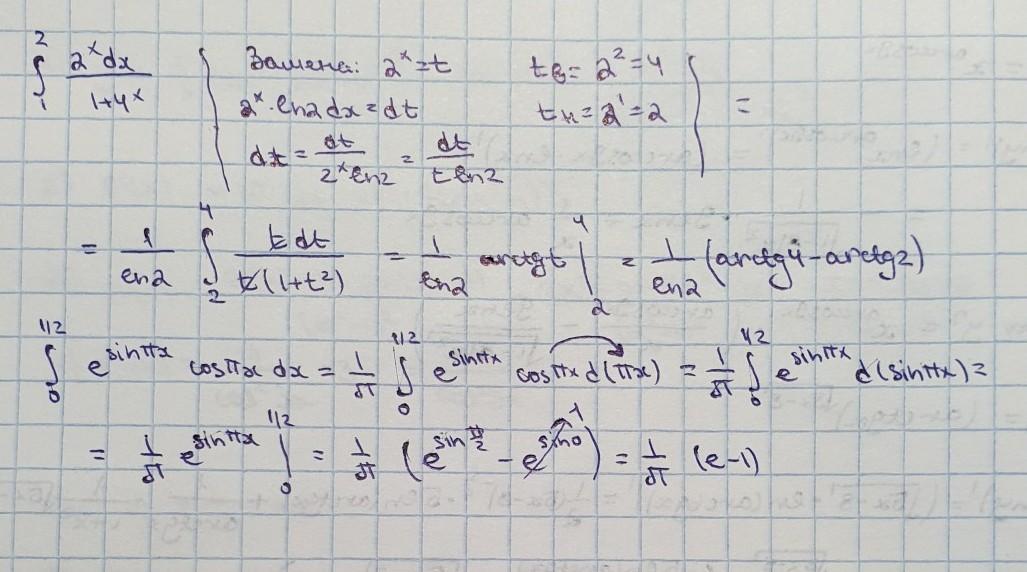 ∫₁² 2ˣdx/(1+4ˣ) | Замена: 2ˣ=t tв=2²=4 | =
2ˣ·ln2dx=dt tн=2¹=2
dx=dt/(2ˣln2)=dt/(t ln2)
= 1/ln2 ∫₂⁴ t dt/(t(1+t²)) = 1/ln2 arctgt |₂⁴ = 1/ln2 (arctg4-arctg2)
∫₀^(1/2) e^(sinπx) cosπx dx = 1/π ∫₀^(1/2) e^(sinπx) cosπx d(πx) = 1/π ∫₀^(1/2) e^(sinπx) d(sinπx)=
= 1/π e^(sinπx) |₀^(1/2) = 1/π (e^(sin π/2) - e^(sin0) 1) = 1/π (e-1)